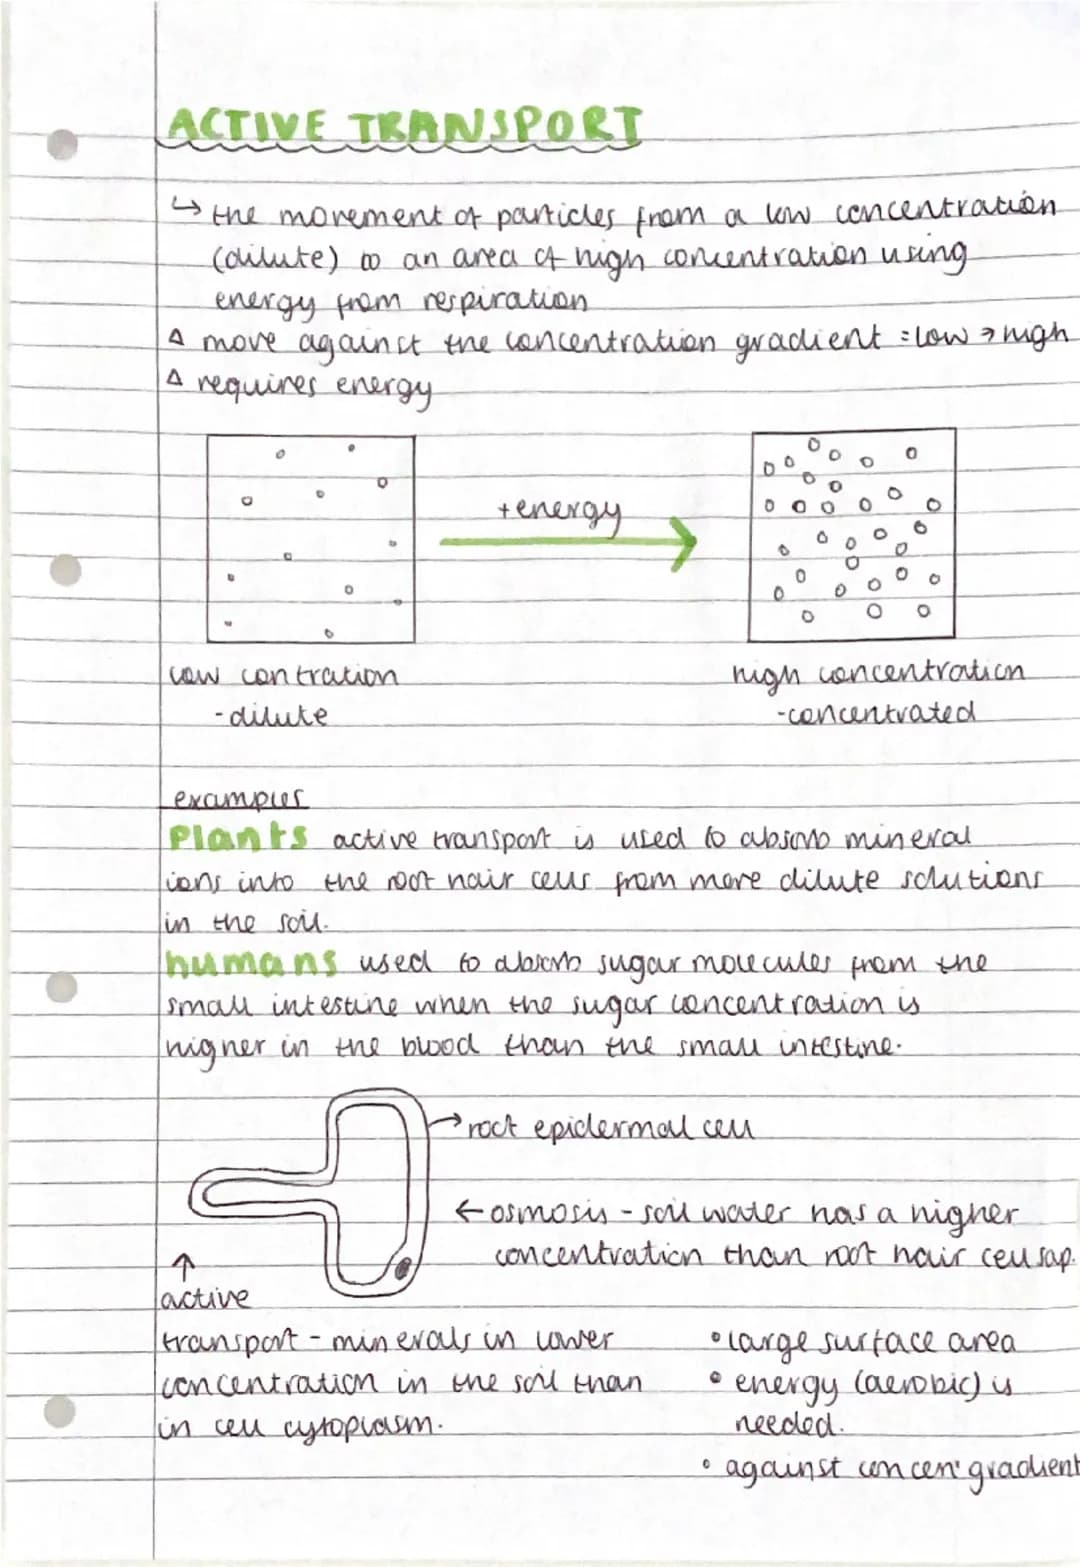 ACTIVE TRANSPORT
↳ the movement of particles from a low concentration
(dilute) to an area of high concentration using
energy from respiration
△ move against the concentration gradient = low → high
△ requires energy
+energy
low contration
-dilute
high concentration
-concentrated
examples
Plants active transport is used to absorb mineral
ions into the root hair cells from more dilute solutions
in the soil.
humans used to absorb sugar molecules from the
small intestine when the sugar concentration is
higher in the blood than the small intestine.
→ root epidermal cell
← osmosis - soil water has a higher
concentration than root hair cell sap.
↑
active
transport - minerals in lower
concentration in the soil than
in cell cytoplasm.
• large surface area
• energy (aerobic) is
needed.
• against concen' gradient